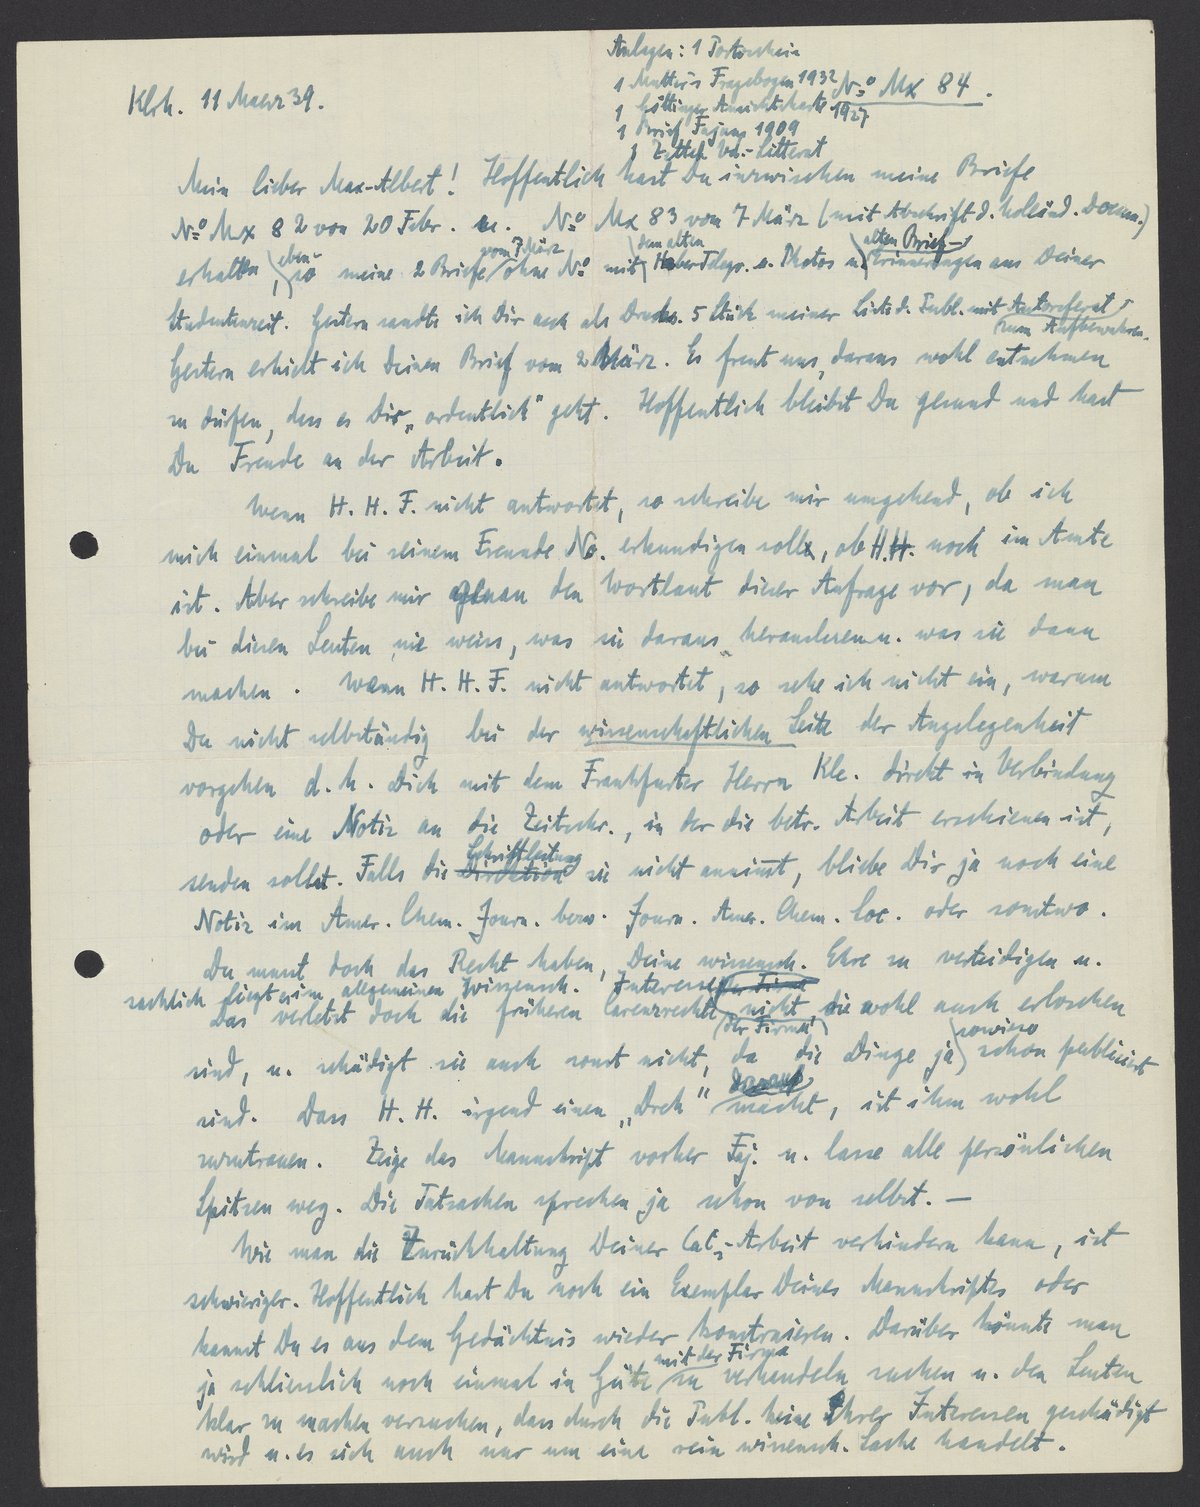 Anlagen: 1 Portoschein
1 Mutters Fragebogen 1932
1 Göttinger Ansichtskarte 1927
1 Brief Fajans 1909
1 Zettel Va.-Litterat
No Mx 84.
Klrh. 11 Maerz 39.
Mein lieber Max-Albert! Hoffentlich hast Du inzwischen meine Briefe
No Mx 82 von 20 Febr. u. No Mx 83 vom 7 März (mit Abschrift d. holländ. Docum.)
erhalten, ebenso meine 2 Briefe vom 7 März ohne No mit dem alten Haber Telegr. u. Photos u. alten Brief-Erinnerungen aus Deiner
Studentenzeit. Gestern sandte ich Dir auch als Drucks. 5 Stück meiner Liste d. Publ. mit Autoreferat zum Aufbewahren.
Gestern erhielt ich Deinen Brief vom 2 März. Es freut uns, daraus wohl entnehmen
zu dürfen, dass es Dir „ordentlich" geht. Hoffentlich bleibst Du gesund und hast
Du Freude an der Arbeit.
Wenn H. H. F. nicht antwortet, so schreibe mir umgehend, ob ich
mich einmal bei seinem Freunde No. erkundigen soll, ob H.H. noch im Amte
ist. Aber schreibe mir genau den Wortlaut dieser Anfrage vor, da man
bei diesen Leuten nie weiss, was sie daraus herauslesen u. was sie dann
machen. Wenn H. H. F. nicht antwortet, so sehe ich nicht ein, warum
Du nicht selbständig bei der wissenschaftlichen Seite der Angelegenheit
vorgehen d. h. Dich mit dem Frankfurter Herrn Kle. direkt in Verbindung
oder eine Notiz an die Zeitschr., in der die betr. Arbeit erschienen ist,
senden sollst. Falls die Schriftleitung sie nicht annimt, bliebe Dir ja noch eine
Notiz im Amer. Chem. Journ. bezw. Journ. Amer. Chem. Soc. oder sonstwo.
Du musst doch das Recht haben, Deine wissensch. Ehre zu verteidigen u.
sachlich liegt es im allgemeinen Wissensch. Interesse
Das verletzt doch die früheren Lavenzrechte der Firma nicht, die wohl auch erloschen
sind, u. schädigt sie auch sonst nicht, da die Dinge ja sowieso schon publiciert
sind. Dass H. H. irgend einen „Dreh" macht, ist ihm wohl
zuzutrauen. Zeige das Manuskript vorher Faj. u. lasse alle persönlichen
Spitzen weg. Die Tatsachen sprechen ja schon von selbst. —
Wie man die Zurückhaltung Deiner CaC2-Arbeit verhindern kann, ist
schwieriger. Hoffentlich hast Du noch ein Exemplar Deines Manuskriptes oder
kannst Du es aus dem Gedächtnis wieder konstruieren. Darüber könnte man
ja schliesslich noch einmal in Güte mit der Firma zu verhandeln suchen u. den Leuten
klar zu machen versuchen, dass durch die Publ. keine Ihrer Interessen geschädigt
wird u. es sich auch nur um eine rein wissensch. Sache handelt.